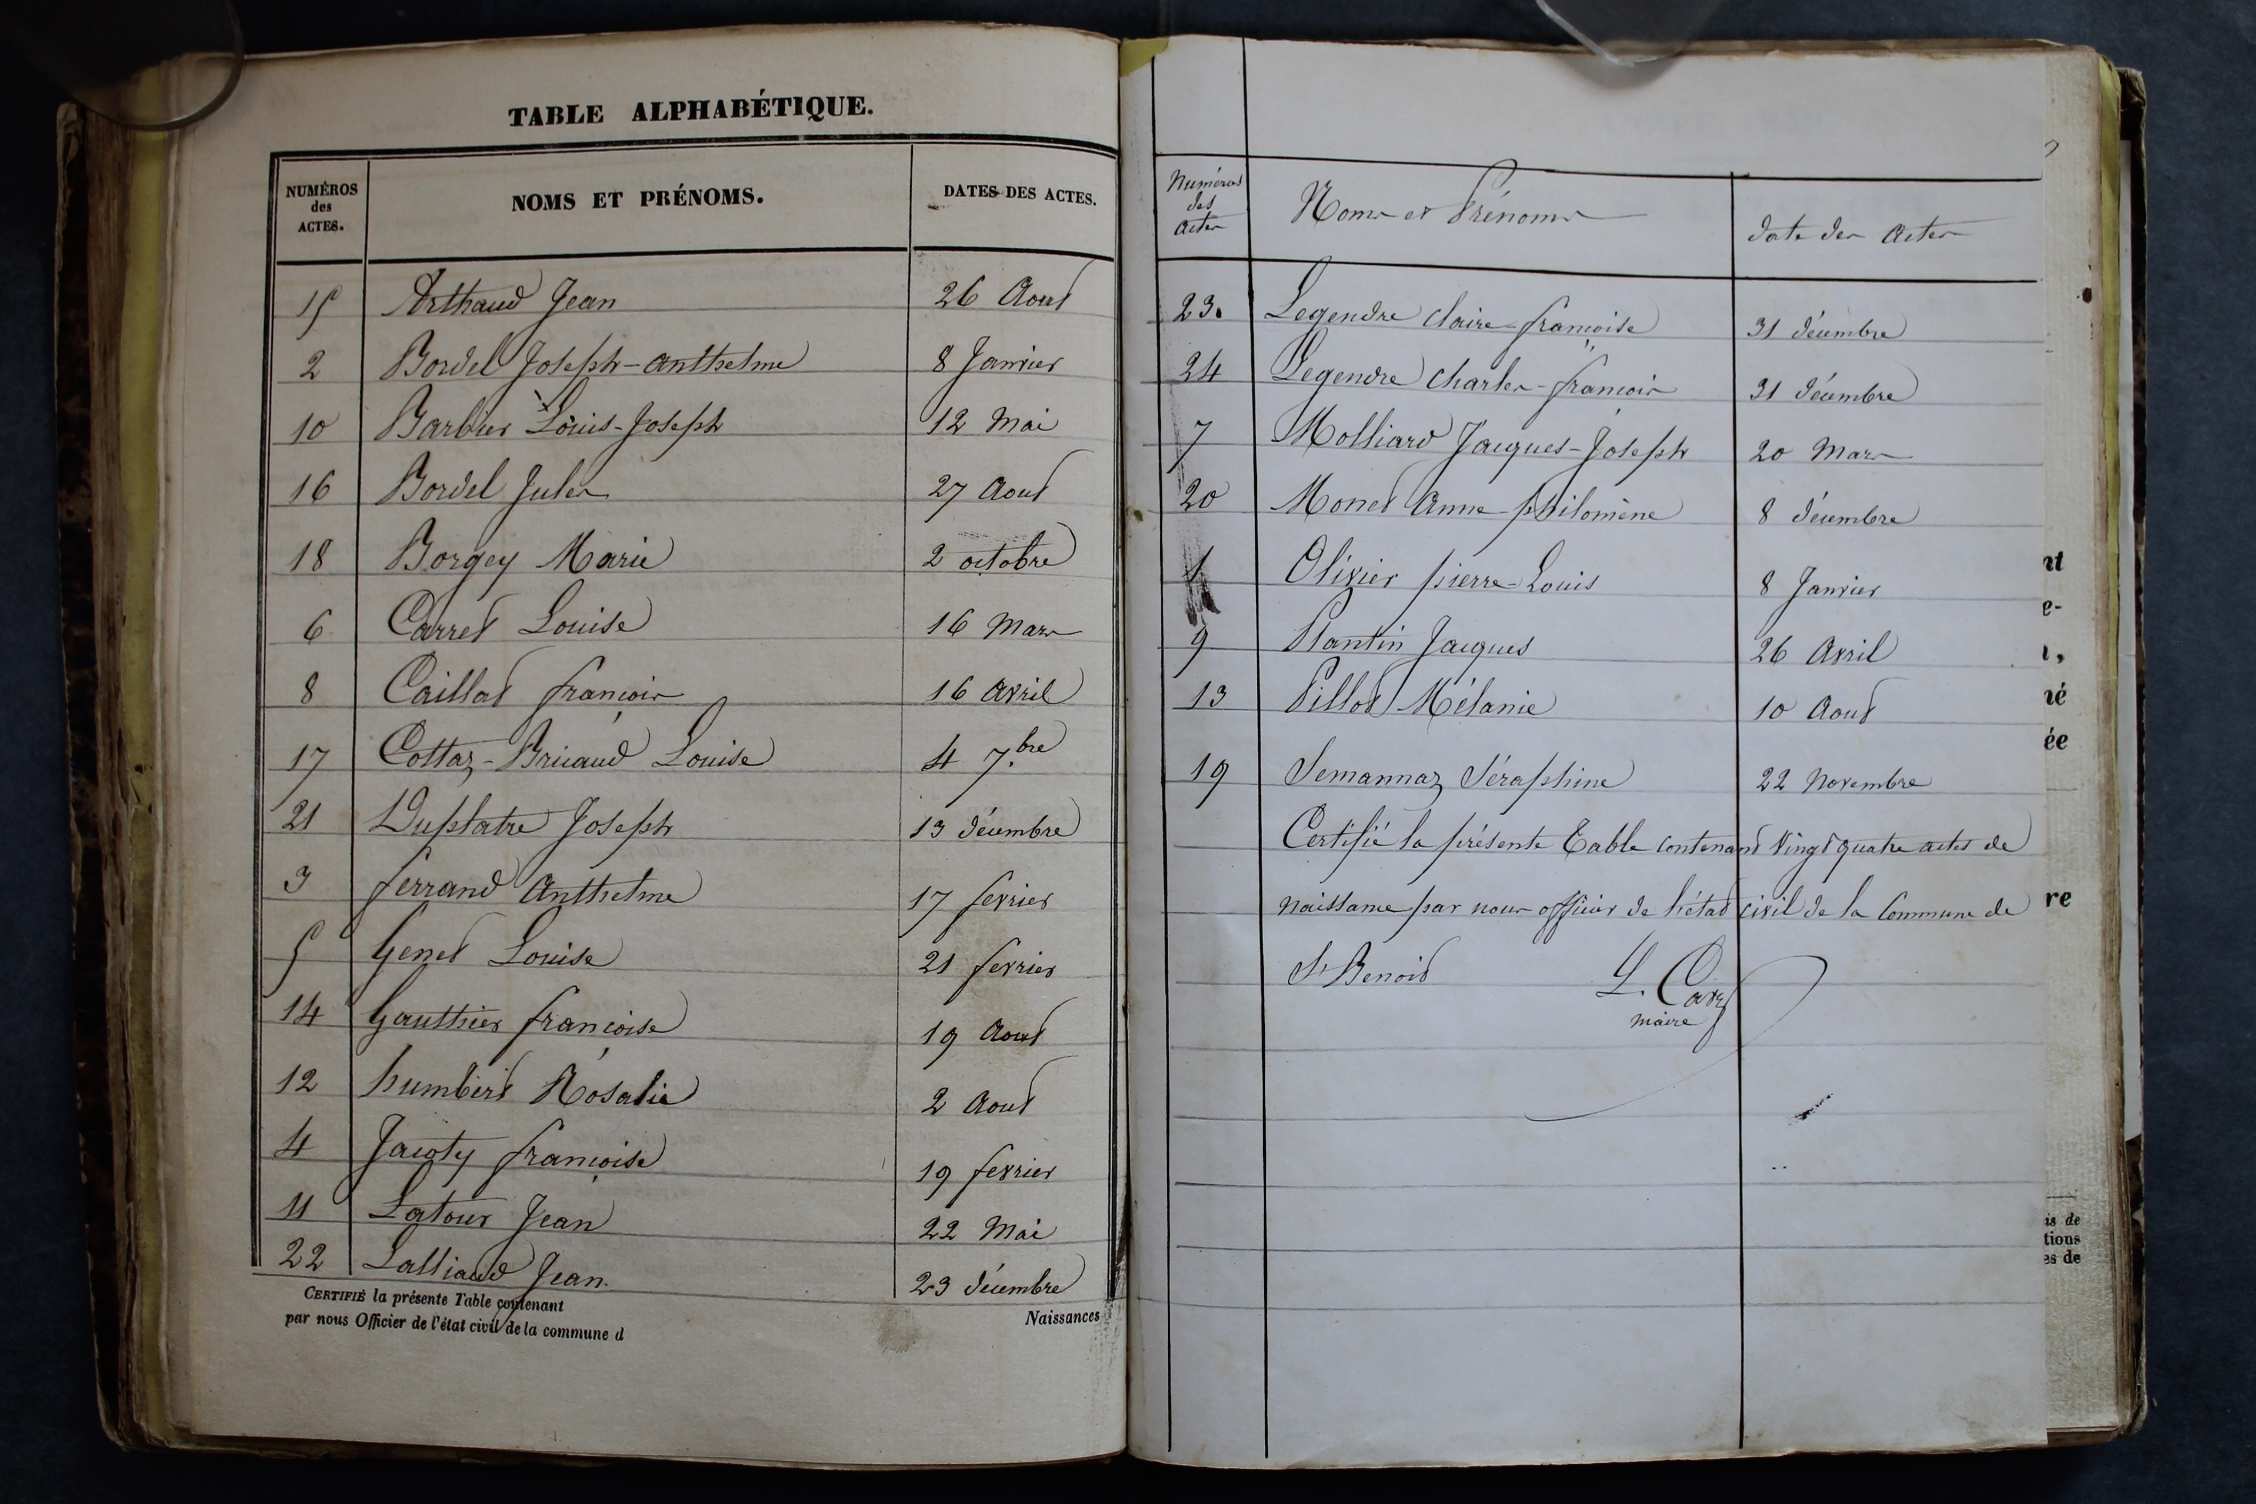 TABLE ALPHABÉTIQUE.
NUMÉROS des ACTES. NOMS ET PRÉNOMS. DATES DES ACTES.
15 Arthaud Jean 26 Aout
2 Bordel Joseph-Anthelme 8 Janvier
10 Barbier Louis-Joseph 12 Mai
16 Bordel Jules 27 Aout
18 Borgey Marie 2 octobre
6 Carret Louise 16 Mars
8 Caillat françois 16 Avril
17 Cottaz-Bricaud Louise 4 7.bre
21 Duplatre Joseph 13 décembre
3 ferrand Anthelme 17 fevrier
5 Genet Louise 21 fevrier
14 Gauthier françoise 19 Aout
12 humbert Rosalie 2 Aout
4 Jacoty françoise 19 fevrier
11 Latour Jean 22 Mai
22 Lalliaud Jean. 23 décembre
CERTIFIÉ la présente Table contenant Naissances
par nous Officier de l'état civil de la commune d
Numéros des Actes Noms et Prénoms date des Actes
23. Legendre claire-françoise 31 décembre
24 Legendre Charles-françois 31 décembre
7 Molliard Jacques-Joseph 20 Mars
20 Monet Anne-philomène 8 décembre
1 Olivier pierre-Louis 8 Janvier
9 Plantin Jacques 26 Avril
13 Pillot Mélanie 10 Aout
19 Semannaz Séraphine 22 Novembre
Certifié la présente Table contenant vingt quatre actes de
naissance par nous officier de l'état civil de la Commune de
St Benoit
maire
nt
e-
né
ée
re
is de
tions
es de